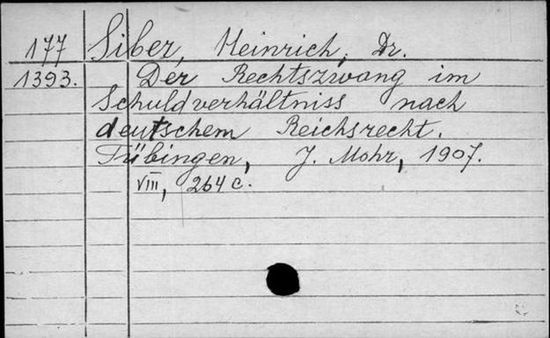 177 Siber, Heinrich, Dr.
1393. Der Rechtszwang im
Schuldverhältniss nach
deutschem Reichsrecht.
Tübingen, J. Mohr, 1907.
VIII, 264 c.